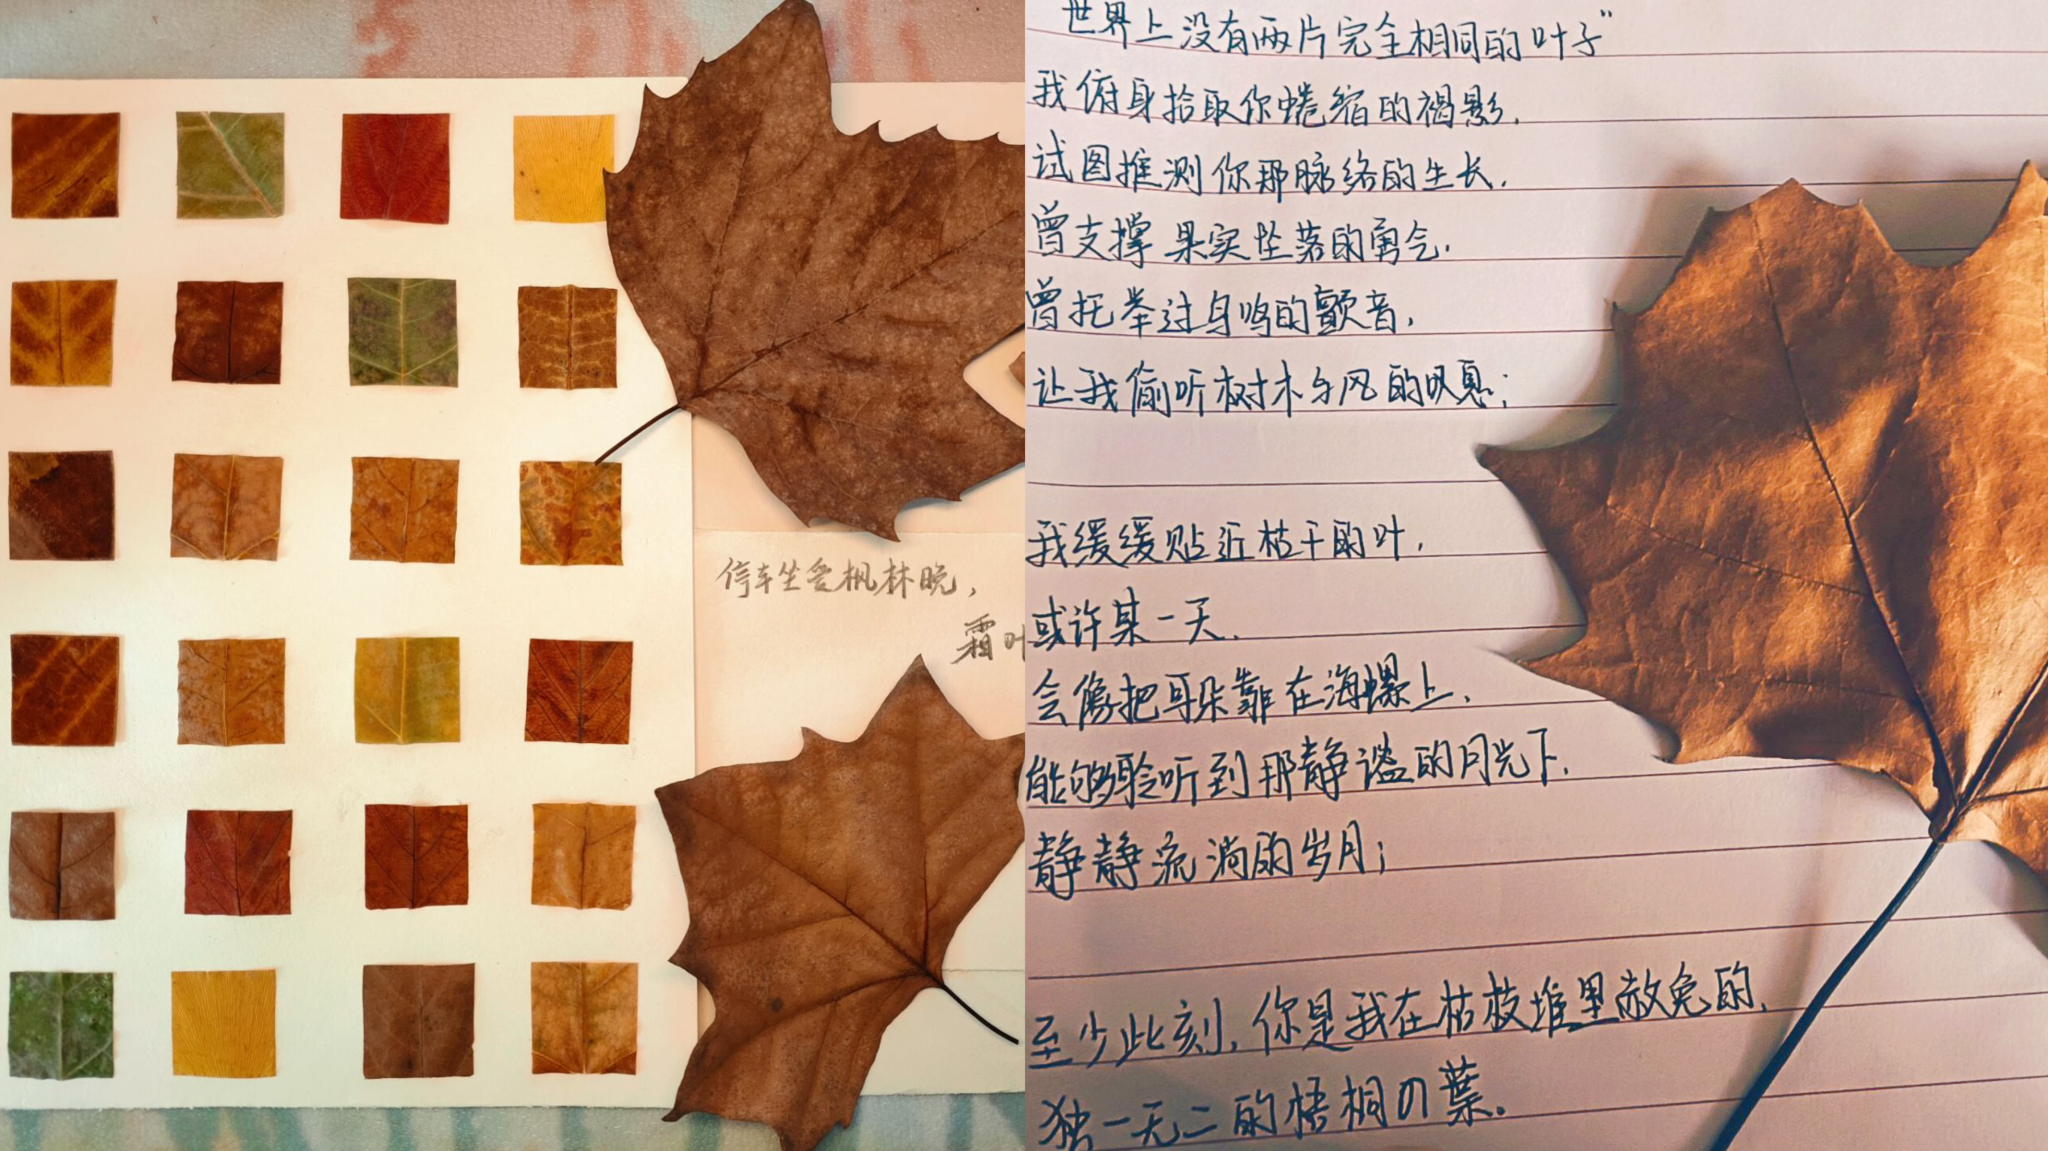 停车坐爱枫林晚，
霜叶
“世界上没有两片完全相同的叶子”
我俯身拾取你蜷缩的褐影，
试图推测你那脉络的生长，
曾支撑果实坠落的勇气，
曾托举过鸟鸣的颤音，
让我偷听树木与风的叹息；
我缓缓贴近枯干的叶，
或许某一天，
会像把耳朵靠在海螺上，
能够聆听到那静谧的月光下，
静静流淌的岁月；
至少此刻，你是我在枯枝堆里赦免的，
独一无二的梧桐の葉。